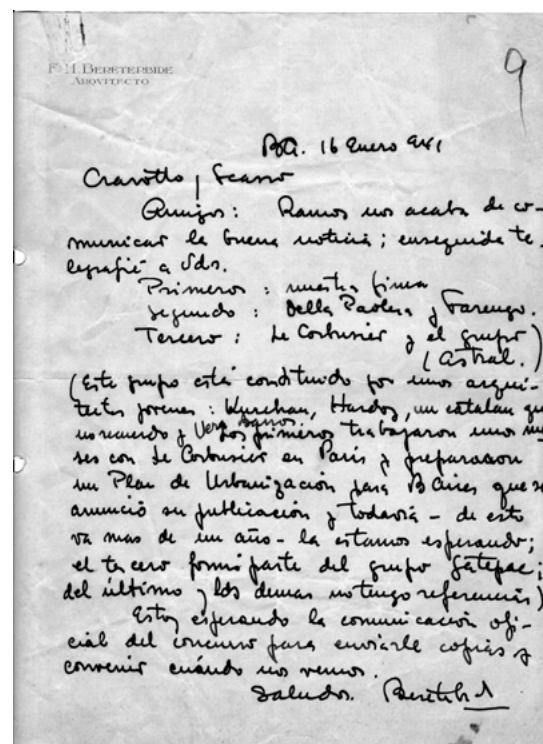 F. H. BERETERBIDE
ARQVITECTO
9
BA. 16 Enero 941
Cravotto y Scasso
Amigos: Ramos nos acaba de co-
municar la buena noticia; enseguida te-
legrafié a Uds.
Primeros: nuestra firma
Segundo: Della Paolera y Farengo.
Tercero: Le Corbusier y el grupo
(Astral.)
(Este grupo está constituido por unos arqui-
tectos jovenes: Kurchan, Hardoy, un catalan que
no recuerdo y Vera Barros. Los primeros trabajaron unos me
ses con Le Corbusier en París y prepararon
un Plan de Urbanización para B Aires que se
anunció su publicación y todavía - de esto
va mas de un año - la estamos esperando;
el tercero formó parte del grupo Gatepac;
del último y los demas no tengo referencias)
Estoy esperando la comunicación ofi-
cial del concurso para enviarle copias y
convenir cuándo nos vemos.
Saludos. Bereterbide